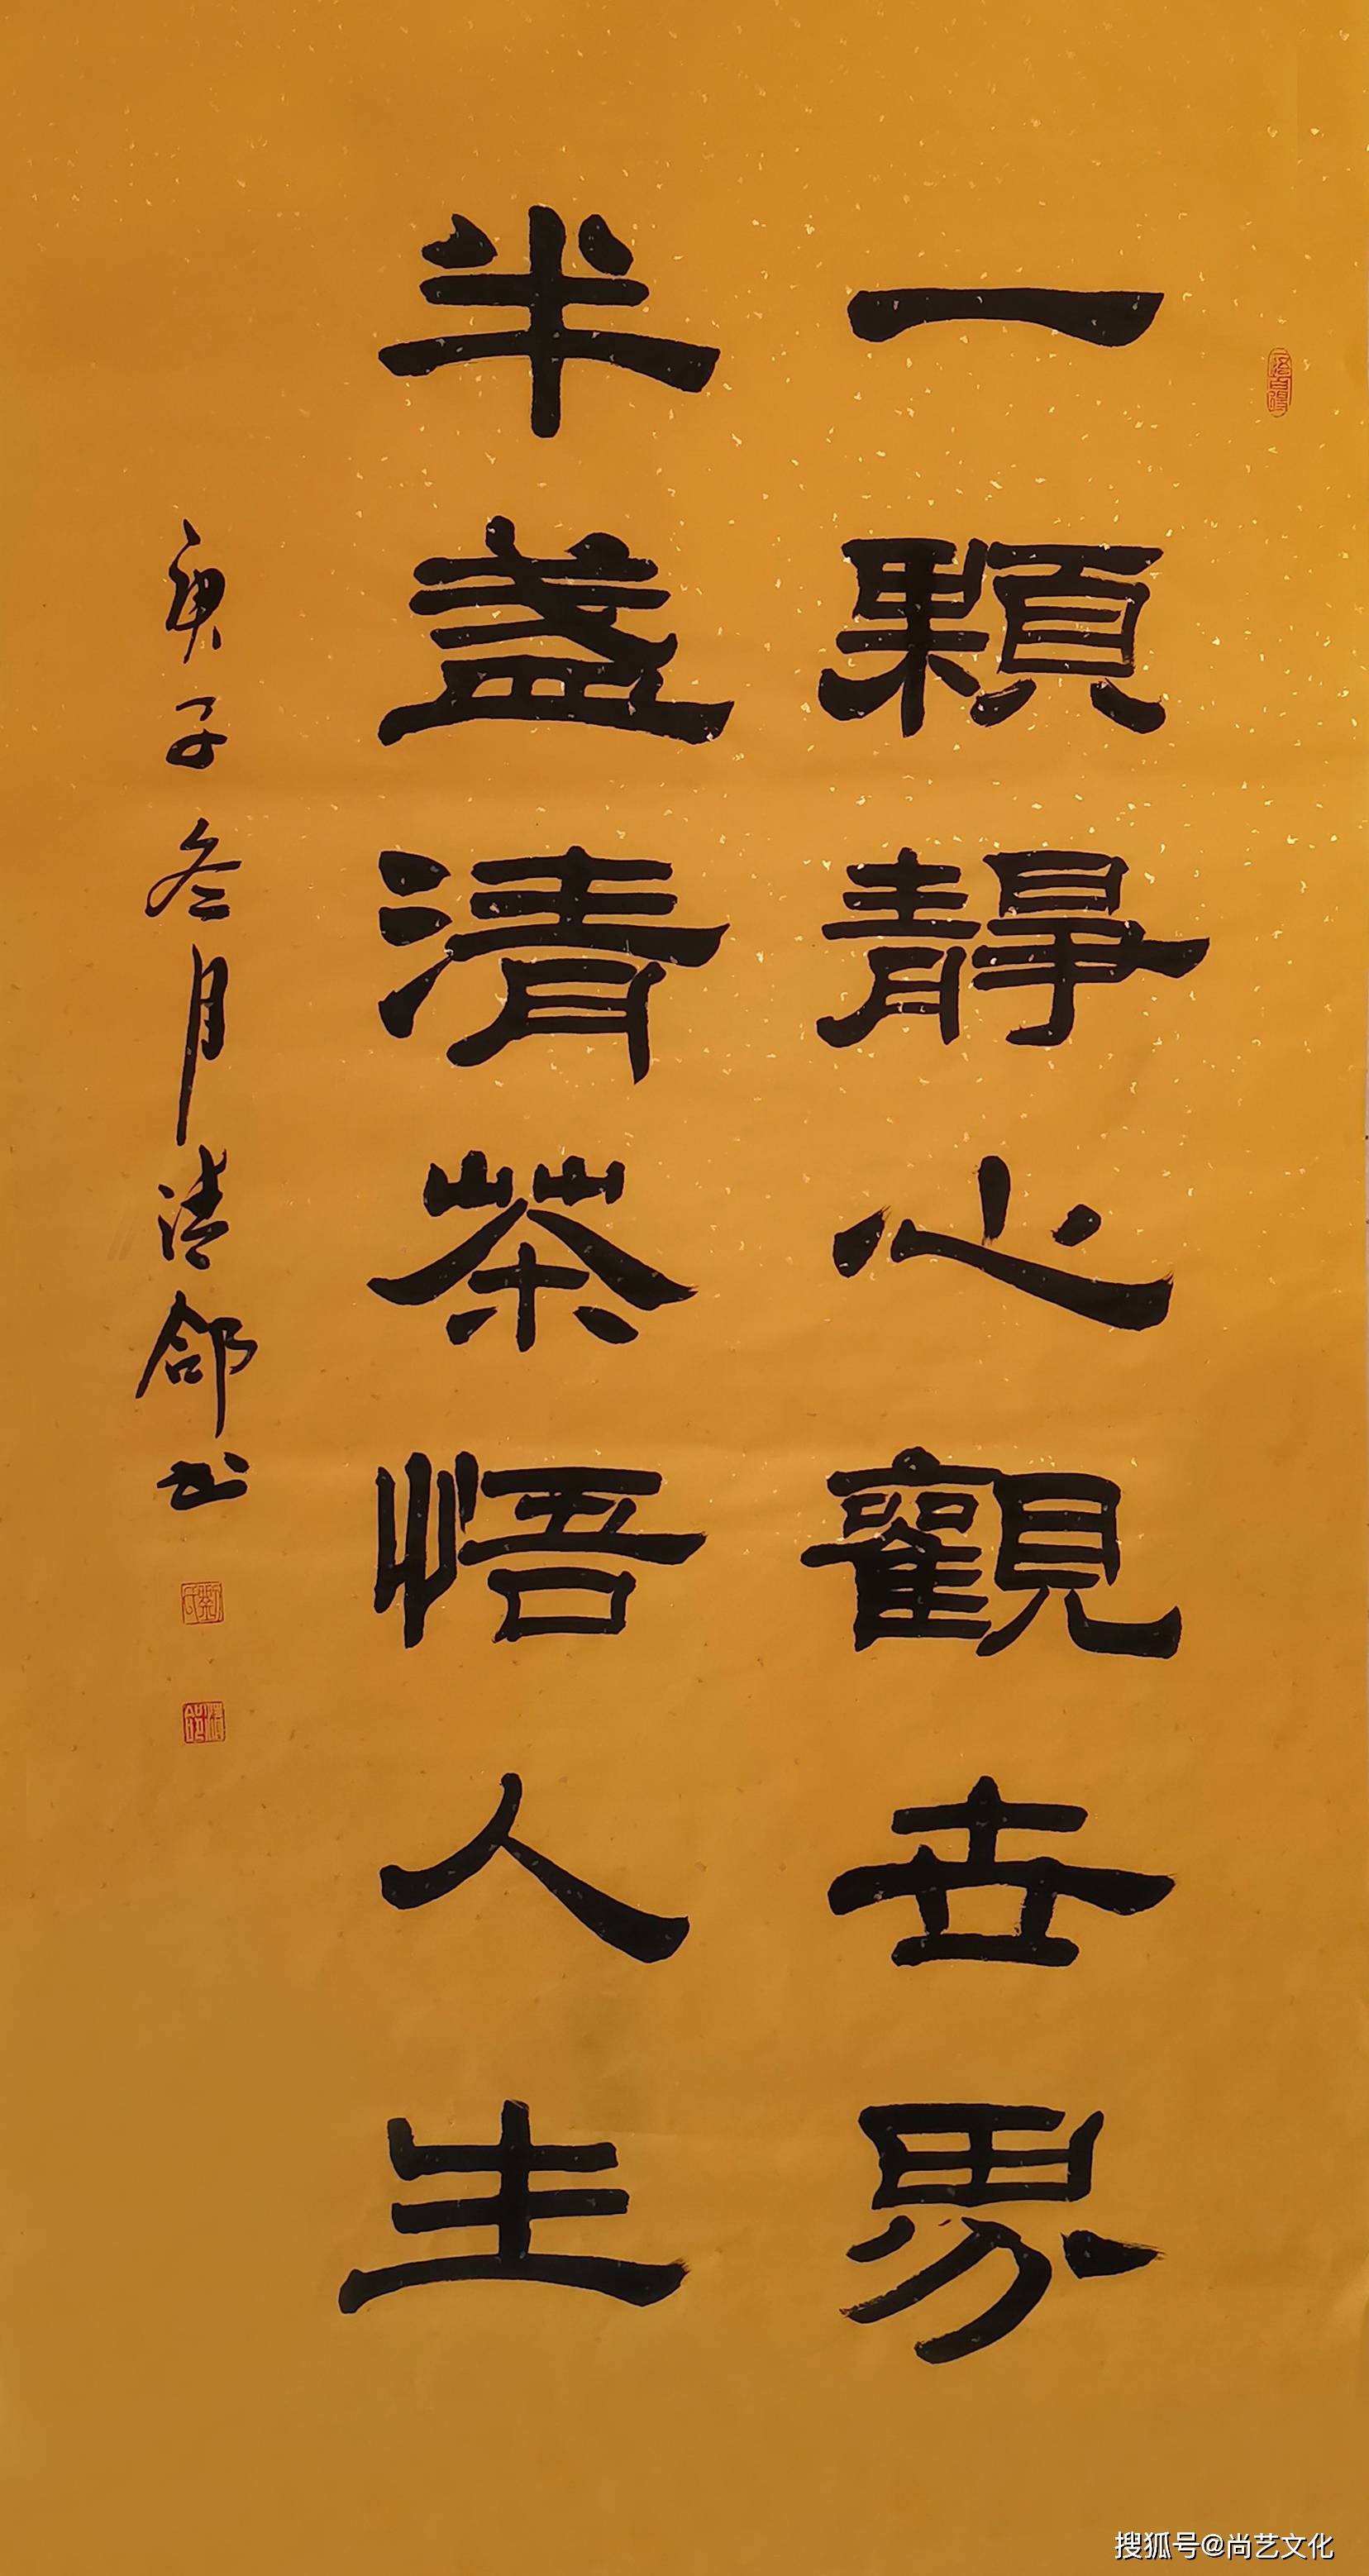 一顆靜心觀世界
半盞清茶悟人生
庚子冬月清郃书
搜狐号@尚艺文化